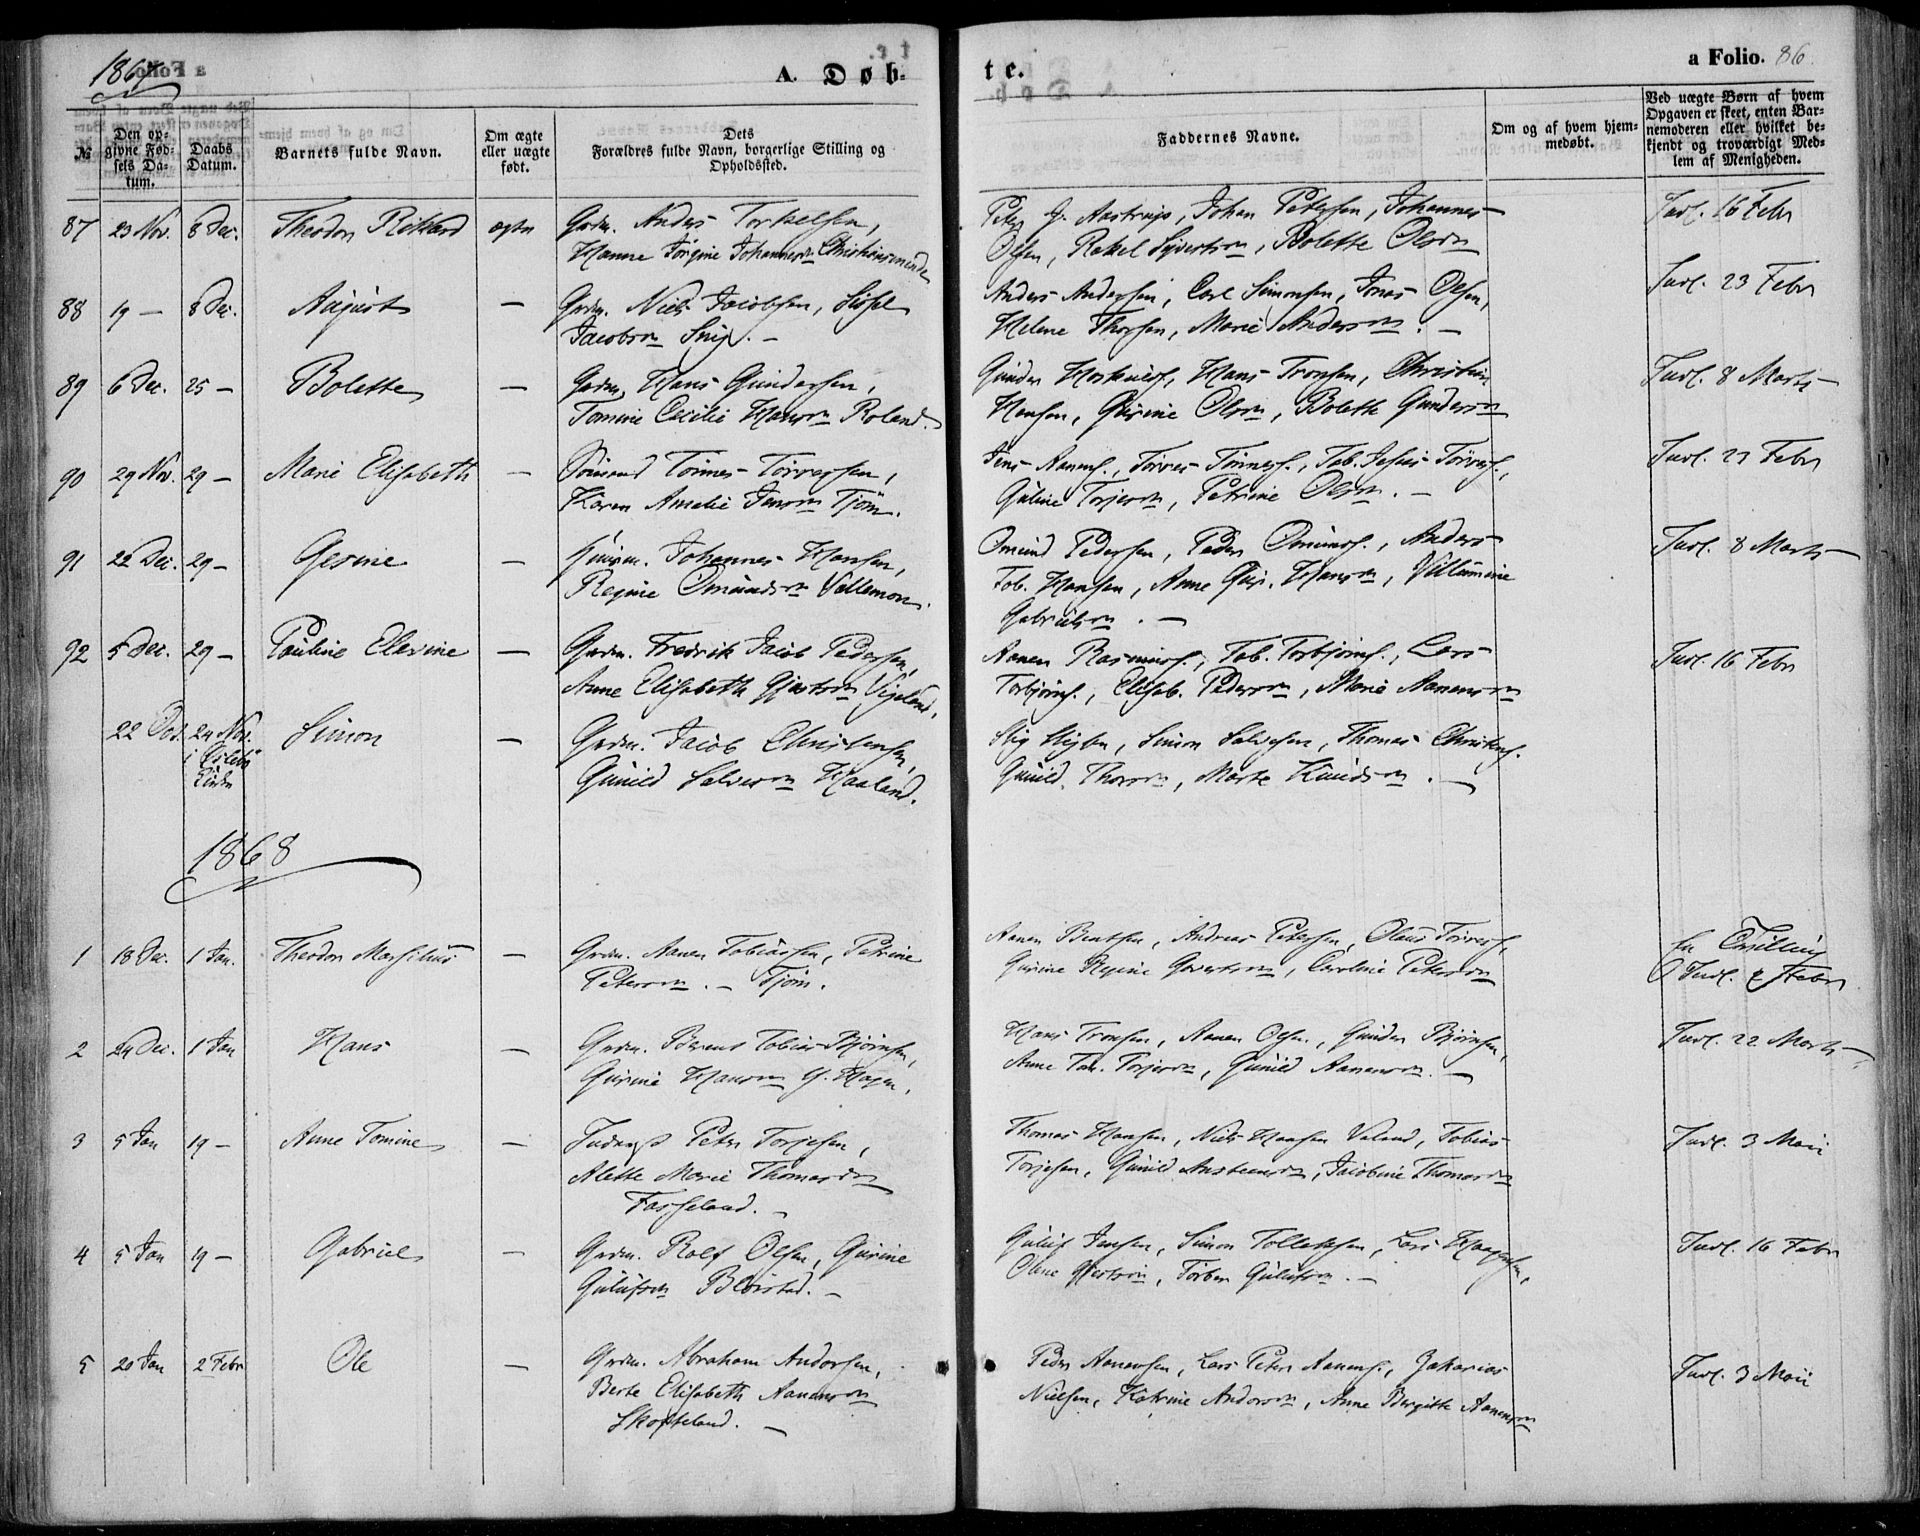 1867
A. Døb-
te.
a Folio. 86
№
Den opgivne Fødsels Datum.
Daabs Datum.
Barnets fulde Navn.
Om ægte eller uægte født.
Dets Forældres fulde Navn, borgerlige Stilling og Opholdssted.
Faddernes Navne.
Om og af hvem hjemmedøbt.
Ved uægte Børn af hvem Opgaven er skeet, enten Barnemoderen eller hvilket bekjendt og troværdigt Medlem af Menigheden.
87 23 Nov. 8 Dec. Theodor Rikhard ægte Grdm. Anders Torkelsen,
Hanne Jörgine Johannesdn Christiansminde
Peter G. Aastrup, Johan Petersen, Johannes
Olsen, Rakel Syvertsdn, Bolette Olsdn
Indl. 16 Febr
88 19 — 8 Dec. August — Grdm. Niels Jacobsen, Sissel
Jacobsdn Snig. —
Anders Andersen, Carl Simonsen, Jonas Olsen,
Helene Thorsen, Marie Andersdn. —
Indl. 23 Febr
89 6 Dec. 25 — Bolette — Grdm. Hans Gundersen,
Tomine Cecilie Hansdn Roland.
Gunder Hoskulds., Hans Tronsen, Christian
Hansen, Gurine Olsdn, Bolette Gundersdn
Indl. 8 Marts
90 29 Nov. 29 — Marie Elisabeth — Sömand Tönnes Törresen,
Karen Amalie Jensdn Tjöm.
Jens Aanens., Törres Tönnes., Tob. Jesius Törres.,
Guline Torjesdn, Petrine Olsdn. —
Indl. 23 Febr
91 22 Dec. 29 — Gesine — Huusm. Johannes Hansen,
Regine Omundsdn Vallemoen.
Omund Pedersen, Peder Omunds., Anders
Tob. Hansen, Anne Gur. Hansdn, Villumine
Gabrielsdn. —
Indl. 8 Marts
92 5 Dec. 29 — Pauline Elevine — Grdm. Fredrik Jacob Pedersen,
Anne Elisabeth Gjertsdn Vigeland.
Aanen Rasmus., Tob. Torbjörns., Lars
Torbjörns., Elisab. Pedersdn, Marie Aanensdn
Indl. 16 Febr
22 Oct. 24 Nov. Simon — Grdm. Jacob Christensen,
i Öslebö
Kirke
Gunild Salvesdn Haaland.
Stig Uigbn, Simon Salvesen, Thomas Christens.
Gunild Thorsdn, Marte Knudsdn. —
1868
1 18 Dec. 1 Jan. Theodor Marselius — Grdm. Aanen Tobiassen, Petrine
Petersdn. — Tjöm.
Aanen Bentsen, Andreas Petersen, Olaus Törres.,
Gurine Regine Govertsdn, Caroline Petersdn
En Tvilling
Indl. 2 Febr
2 24 Dec. 1 Jan Hans — Grdm. Börent Tobias Björnsen,
Gurine Hansdn Y. Hagen.
Hans Tronsen, Aanen Olsen., Gunder Björnsen,
Anne Tom. Torjesdn, Gunild Aanensdn. —
Indl. 22 Marts
3 5 Jan 19 — Anne Tomine — Inderst Peter Torjesen,
Alette Marie Thomasdn
Fasseland. —
Thomas Hansen, Niels Hansen Valand, Tobias
Torjesen, Gunild Anstensdn, Jacobine Thomasdn
Indl. 3 Mai
4 5 Jan 19 — Gabriel — Grdm. Rolf Olsen, Gurine
Gulufsdn Bleistad. —
Guluf Jensen, Simon Tollefsen, Lars Haagensen,
Olene Gjertsdn, Torber Gulufsdn. —
Indl. 16 Febr
5 20 Jan 2 Febr Ole — Grdm. Abraham Andersen,
Berte Elisabeth Aanensdn
Skofteland. —
Peder Aanensen, Lars Peter Aanens., Zakarias
Nielsen, Katrine Andersdn, Anne Bergitte Aanensdn
Indl. 3 Mai